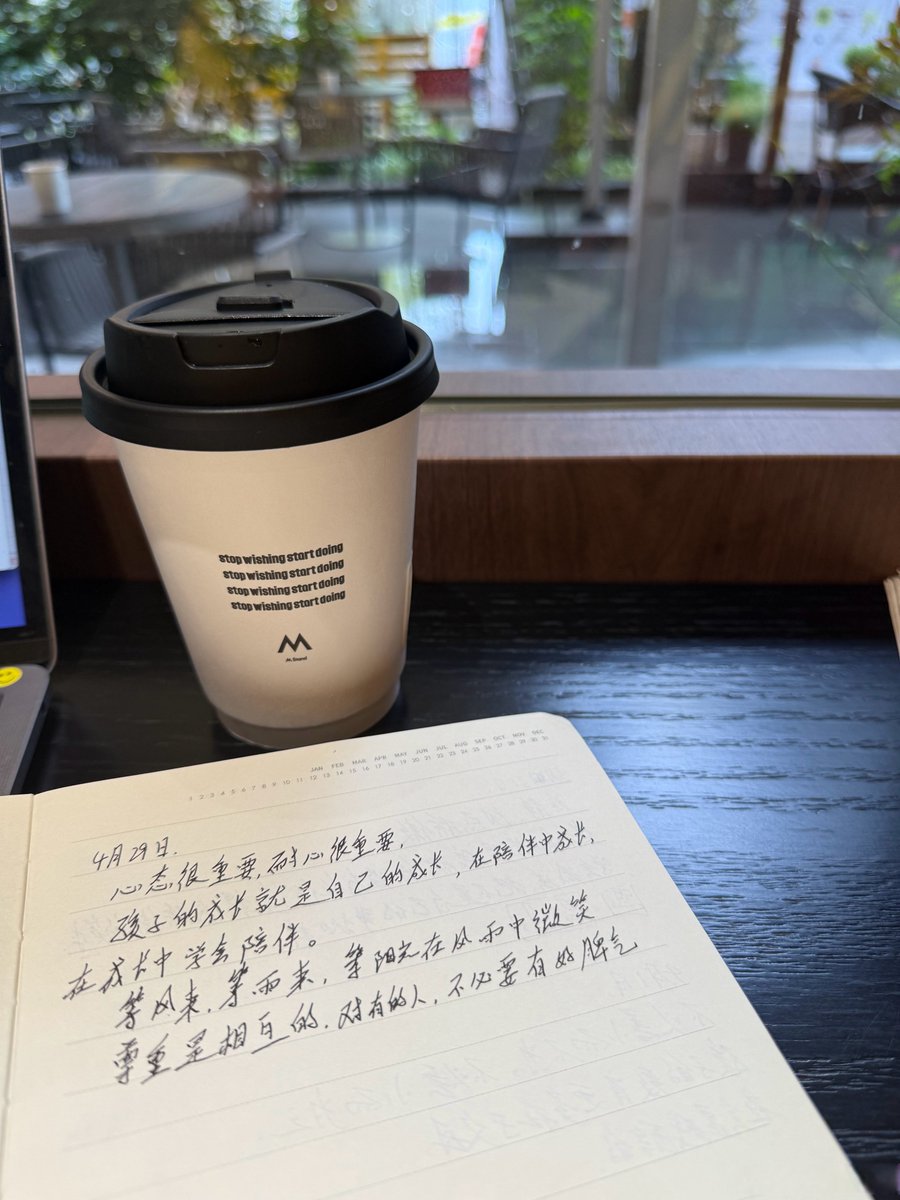 stop wishing start doing
stop wishing start doing
stop wishing start doing
stop wishing start doing
JAN FEB MAR APR MAY JUN JUL AUG SEP OCT NOV DEC
1 2 3 4 5 6 7 8 9 10 11 12 13 14 15 16 17 18 19 20 21 22 23 24 25 26 27 28 29 30 31
4月29日.
心态很重要,耐心很重要,
孩子的成长就是自己的成长,在陪伴中成长,
在成长中学会陪伴。
等风来,等雨来,等阳光在风雨中微笑
尊重是相互的.对有的人,不必要有好脾气